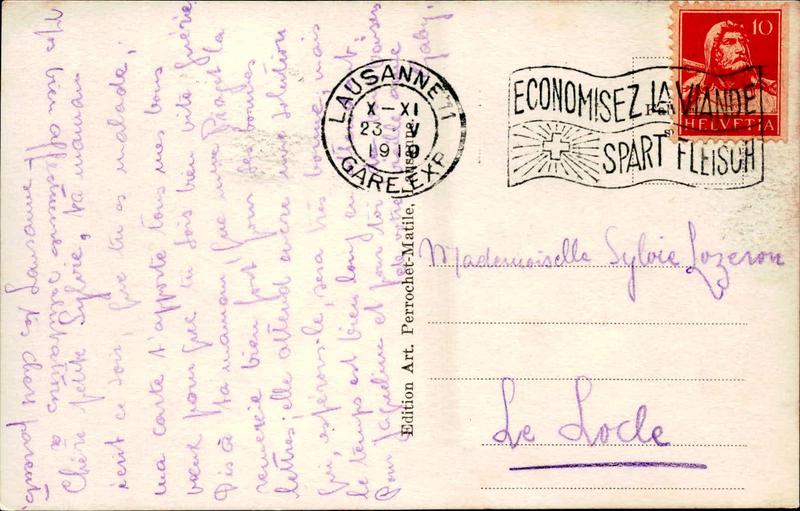 LAUSANNE 1
X–XI
23 V
1919
GARE.EXP.
ECONOMISEZ LA VIANDE
SPART FLEISCH
10
HELVETIA
Mademoiselle Sylvie Lozeron
Le Locle
Edition Art. Perrochet-Matile, Lausanne
Lausanne
Chère petite Sylvie, ta maman
écrit ce soir, que tu es malade,
ma carte t'apporte tous mes bons
vœux pour que tu sois bien vite guérie.
Dis à ta maman que Mme Piaget la
remercie bien fort pour ses bonnes
lettres; elle attend avec une solution
qui, espérons-le, sera très bonne, mais
le temps est bien long en
Pour Jaqueline et pour toi
Gaby.
Mes bien affectueuses salutations à
tes chers parents.